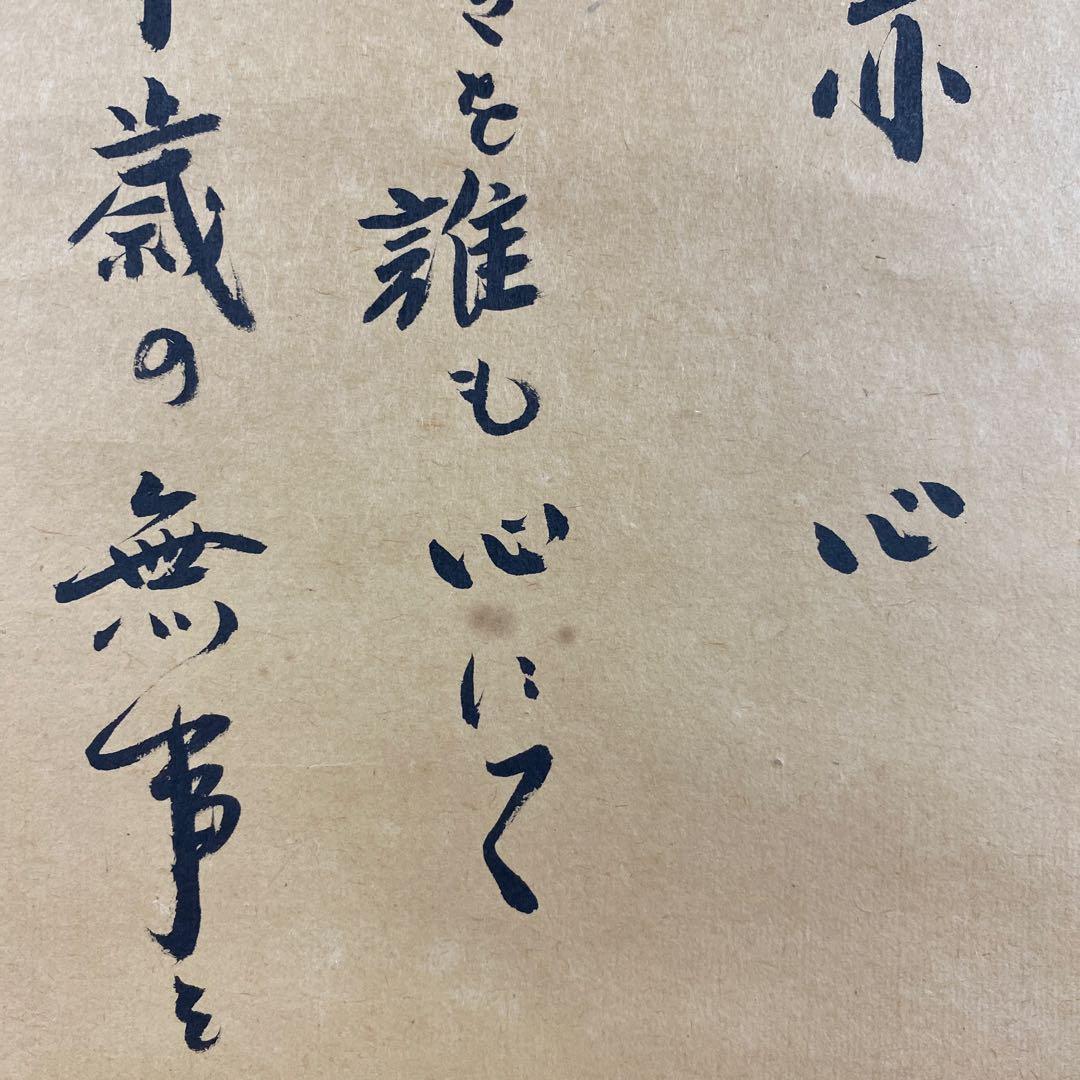 赤心
を誰も心にて
歳の無事と